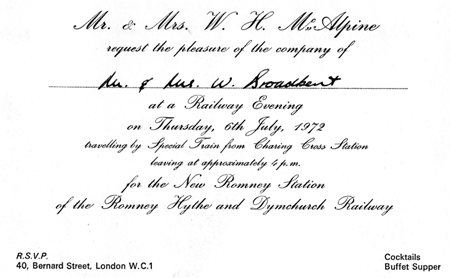 Mr. & Mrs. W. H. McAlpine
request the pleasure of the company of
Mr. & Mrs. W. Broadbent
at a Railway Evening
on Thursday, 6th July, 1972
travelling by Special Train from Charing Cross Station
leaving at approximately 4 p.m.
for the New Romney Station
of the Romney Hythe and Dymchurch Railway
R.S.V.P.
40, Bernard Street, London W.C.1
Cocktails
Buffet Supper